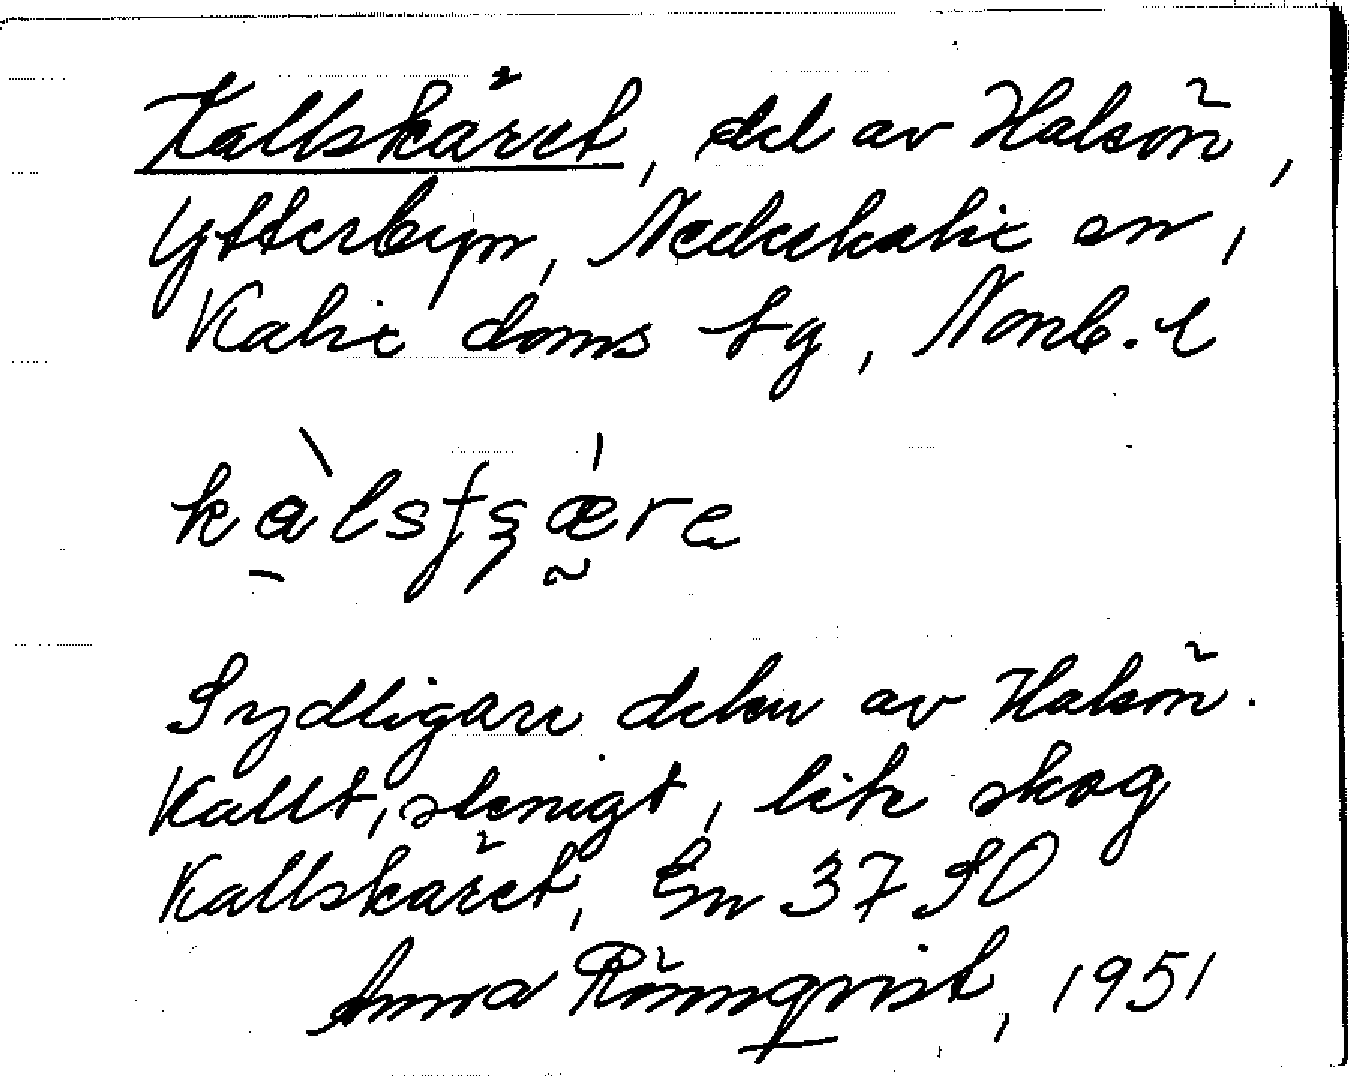 Kallskäret, del av Halsön,
Ytterbyn, Nederkalix sn,
Kalix doms tg, Norrb. l
Sydligare delen av Halsön.
Kallt, stenigt, lite skog
Kallskäret, En 37 SO
Anna Rönnqvist, 1951